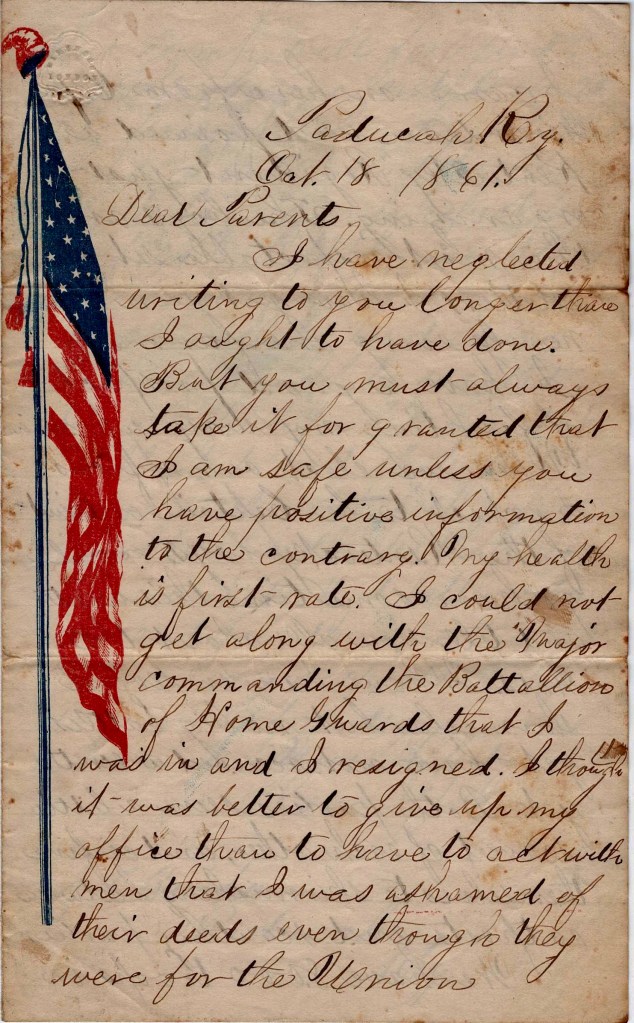 Paducah Ky.
Oct. 18 1861.
Dear Parents
I have neglected
writing to you longer than
I ought to have done.
But you must always
take it for granted that
I am safe unless you
have positive information
to the contrary. My health
is first-rate. I could not
get along with the Major
commanding the Battallion
of Home Guards that I
was in and I resigned. I though
it was better to give up my
office than to have to act with
men that I was ashamed of
their deeds even though they
were for the Union